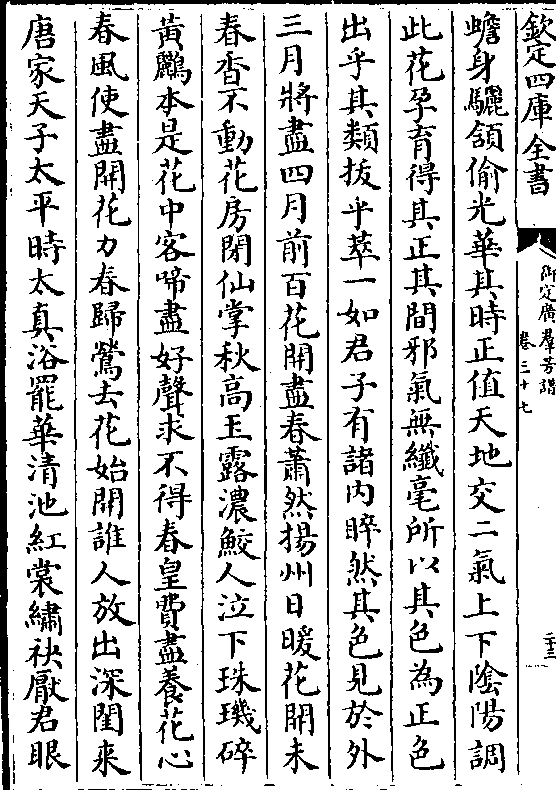 欽定四庫全書
御定廣羣芳譜
卷三十七
二十三
蟾身驪頷偷光華其時正值天地交二氣上下陰陽調
此花孕育得其正其間邪氣無纖毫所以其色為正色
出乎其類拔乎萃一如君子有諸内睟然其色見於外
三月將盡四月前百花開盡春蕭然揚州日暖花開未
春香不動花房閉仙掌秋高玉露濃鮫人泣下珠璣碎
黃鸝本是花中客啼盡好聲求不得春皇費盡養花心
春風使盡開花力春歸鶯去花始開誰人放出深閨來
唐家天子太平時太真浴罷華清池紅裳繡袂厭君眼